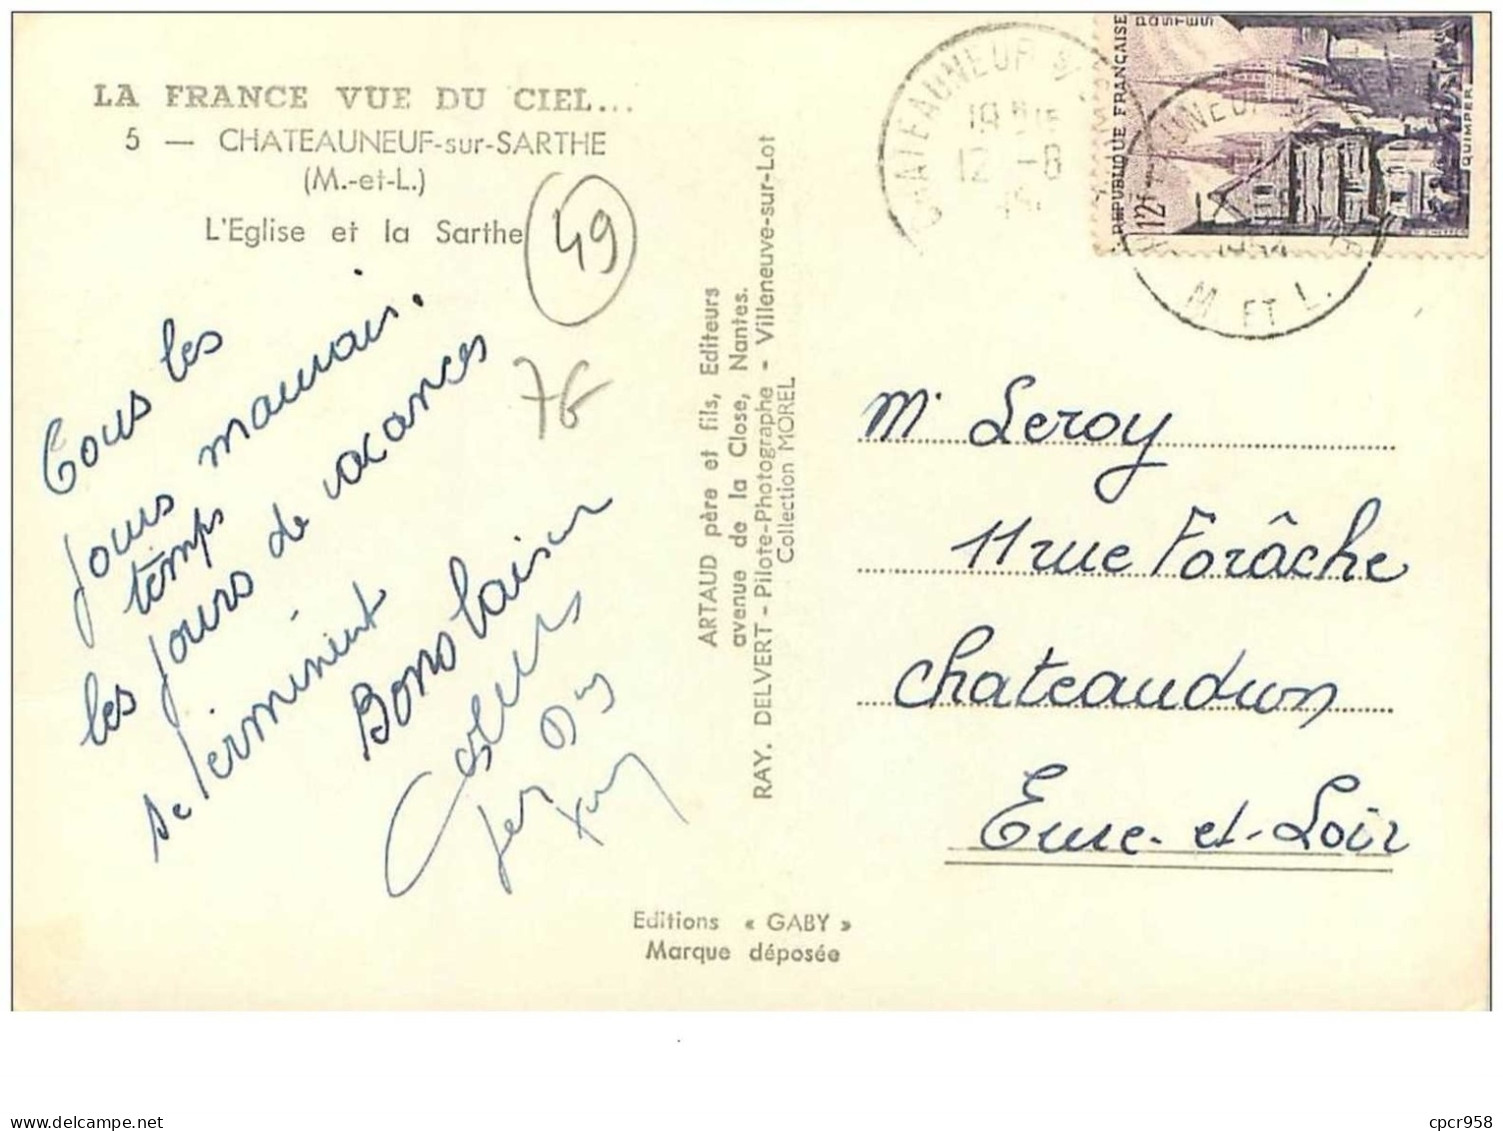 LA FRANCE VUE DU CIEL...
5 — CHATEAUNEUF-sur-SARTHE
(M.-et-L.)
L'Eglise et la Sarthe
49
76
Tous les
jours mauvais.
temps
les jours de vacances
se terminent
Bons baisers
ARTAUD père et fils, Editeurs
avenue de la Close, Nantes.
RAY. DELVERT - Pilote-Photographe - Villeneuve-sur-Lot
Collection MOREL
Editions « GABY »
Marque déposée
CHATEAUNEUF S/
12 -8
1954
M ET L.
POSTES
REPUBLIQUE FRANÇAISE
12F
QUIMPER
Mr Leroy
11 rue Forâche
Chateaudun
Eure-et-Loir
cpcr958